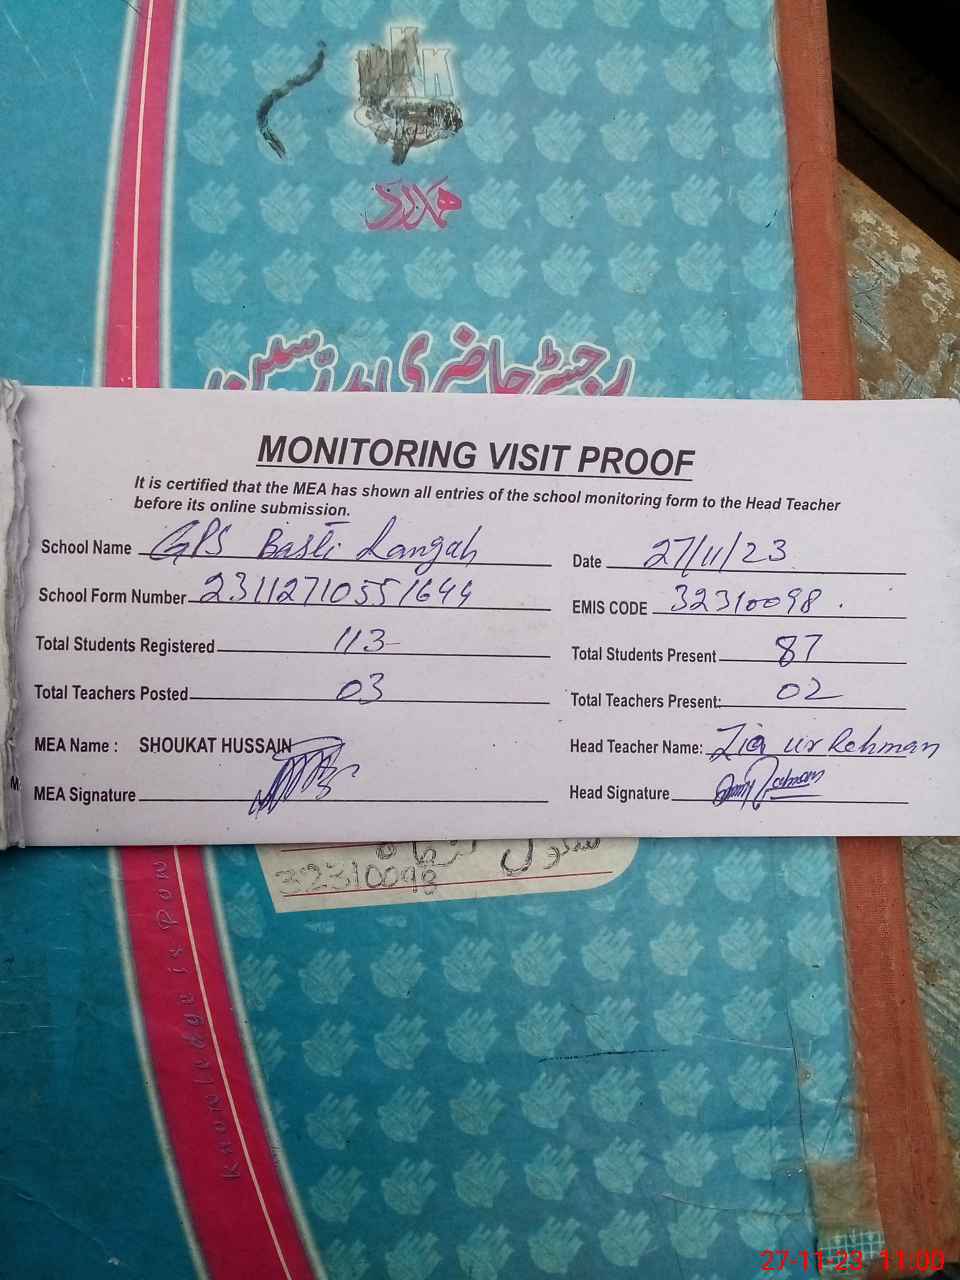 KKK
ہمدرد
رجسٹر حاضری
MONITORING VISIT PROOF
It is certified that the MEA has shown all entries of the school monitoring form to the Head Teacher
before its online submission.
School Name GPS Basti Langah Date 27/11/23
School Form Number 23112710551644 EMIS CODE 32310098
Total Students Registered 113 Total Students Present 87
Total Teachers Posted 03 Total Teachers Present: 02
MEA Name : SHOUKAT HUSSAIN Head Teacher Name: Zia ur Rehman
MEA Signature Head Signature
سکول
32310098
Knowledge is Pow
27-11-23 11:00